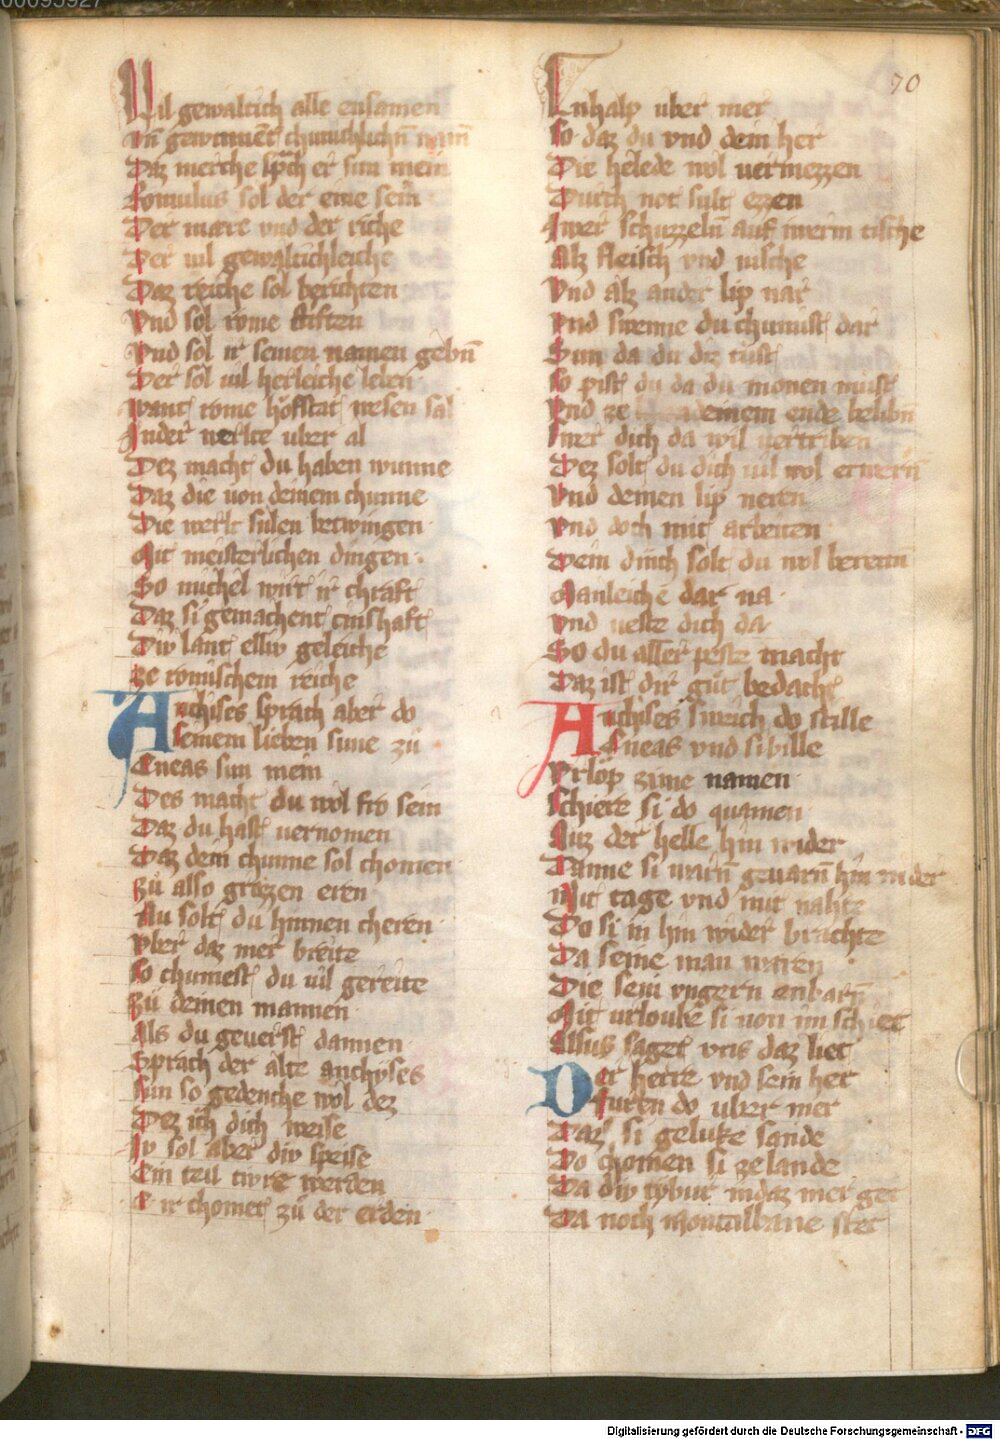 00095927
70
Vil gewaltich alle ensamen
Vñ gewinnēt chunichlichñ nam̄
Daz merche sp̄ch er sun mein
Romulus sol der eine sein
Der mare vnd der riche
Der uil gewaltichleiche
Daz reiche sol berichten
Vnd sol rome stiften
Vnd sol ir seinen namen gebñ
Der sol uil herleiche leben
Want rome hofstat wesen sal
In der werlte uber al
Dez macht du haben wunne
Daz die uon deinem chunne
Die werlt sulen betwingen
Mit meisterlichen dingen
So michel wirt ir chraft
Daz si gemachent cinshaft
Div lant elliv geleiche
Ze romischem reiche
Anchises sprach aber do
seinem lieben sune zů
Eneas sun mein
Des macht du wol fro sein
Daz du hast uernomen
Daz dein chunne sol chomen
Zů also grozzen eren
Nu solt du hinnen cheren
Vber daz mer breite
So chumest du uil gereite
Zů deinen mannen
Als du geuerst dannen
Sprach der alte anchyses
Sun so gedenche wol dez
Dez ich dich weise
Iv sol aber div speise
Ein teil tivre werden
E ir chomet zů der erden
Enhalp uber mer
So daz du vnd dein her
Die helede wol uermezzen
Durch not sult ezzen
Iwer schuzzeln auf iwerm tische
Alz fleisch vnd uische
Vnd alz ander lip nar
Vnd swenne du chumist dar
Sun da du diz tůst
So pist du da du wonen můst
Vnd ze deinem ende belibñ
Swer dich da wil uertriben
Dez solt du dich uil wol erwern
Vnd deinen lip neren
Vnd doch mit arbeiten
Dein dinch solt du wol bereitñ
Manleiche dar na
Vnd ueste dich da
So du aller peste macht
Daz ist dir gůt bedacht
Anchises sweich do stille
Eneas vnd sibille
Vrlop zime namen
Schiere si do quamen
Auz der helle hin wider
Danne si warñ geuarñ hin nider
Mit tage vnd mit nahte
Do si in hin wider brachte
Da seine man waren
Die sein vngern enbarñ
Mit urloube si uon im schiet
Alsus saget vns daz liet
Der herre vnd sein her
Furen do uber mer
Daz si geluke sande
Do chomen si ze lande
Da div tybur in daz mer get
Da noch montalbane stet
Digitalisierung gefördert durch die Deutsche Forschungsgemeinschaft - DFG